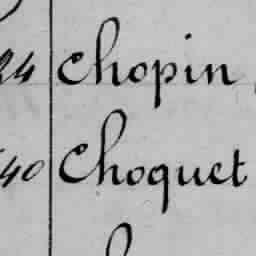 24 Chopin
40 Choquet